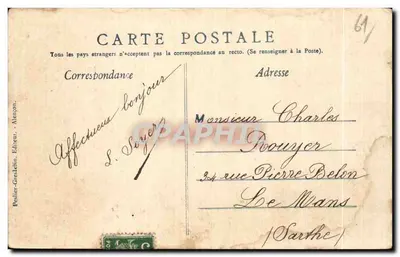 61
CARTE POSTALE
Tous les pays étrangers n'acceptent pas la correspondance au recto. (Se renseigner à la Poste).
Correspondance
Adresse
Affectueux bonjour
Monsieur Charles
Rouyer
24 rue Pierre Belon
Le Mans
(Sarthe)
CARTHAPHILATELIE